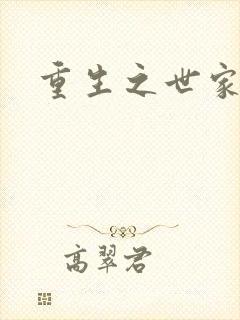 重生之世家
高翠君